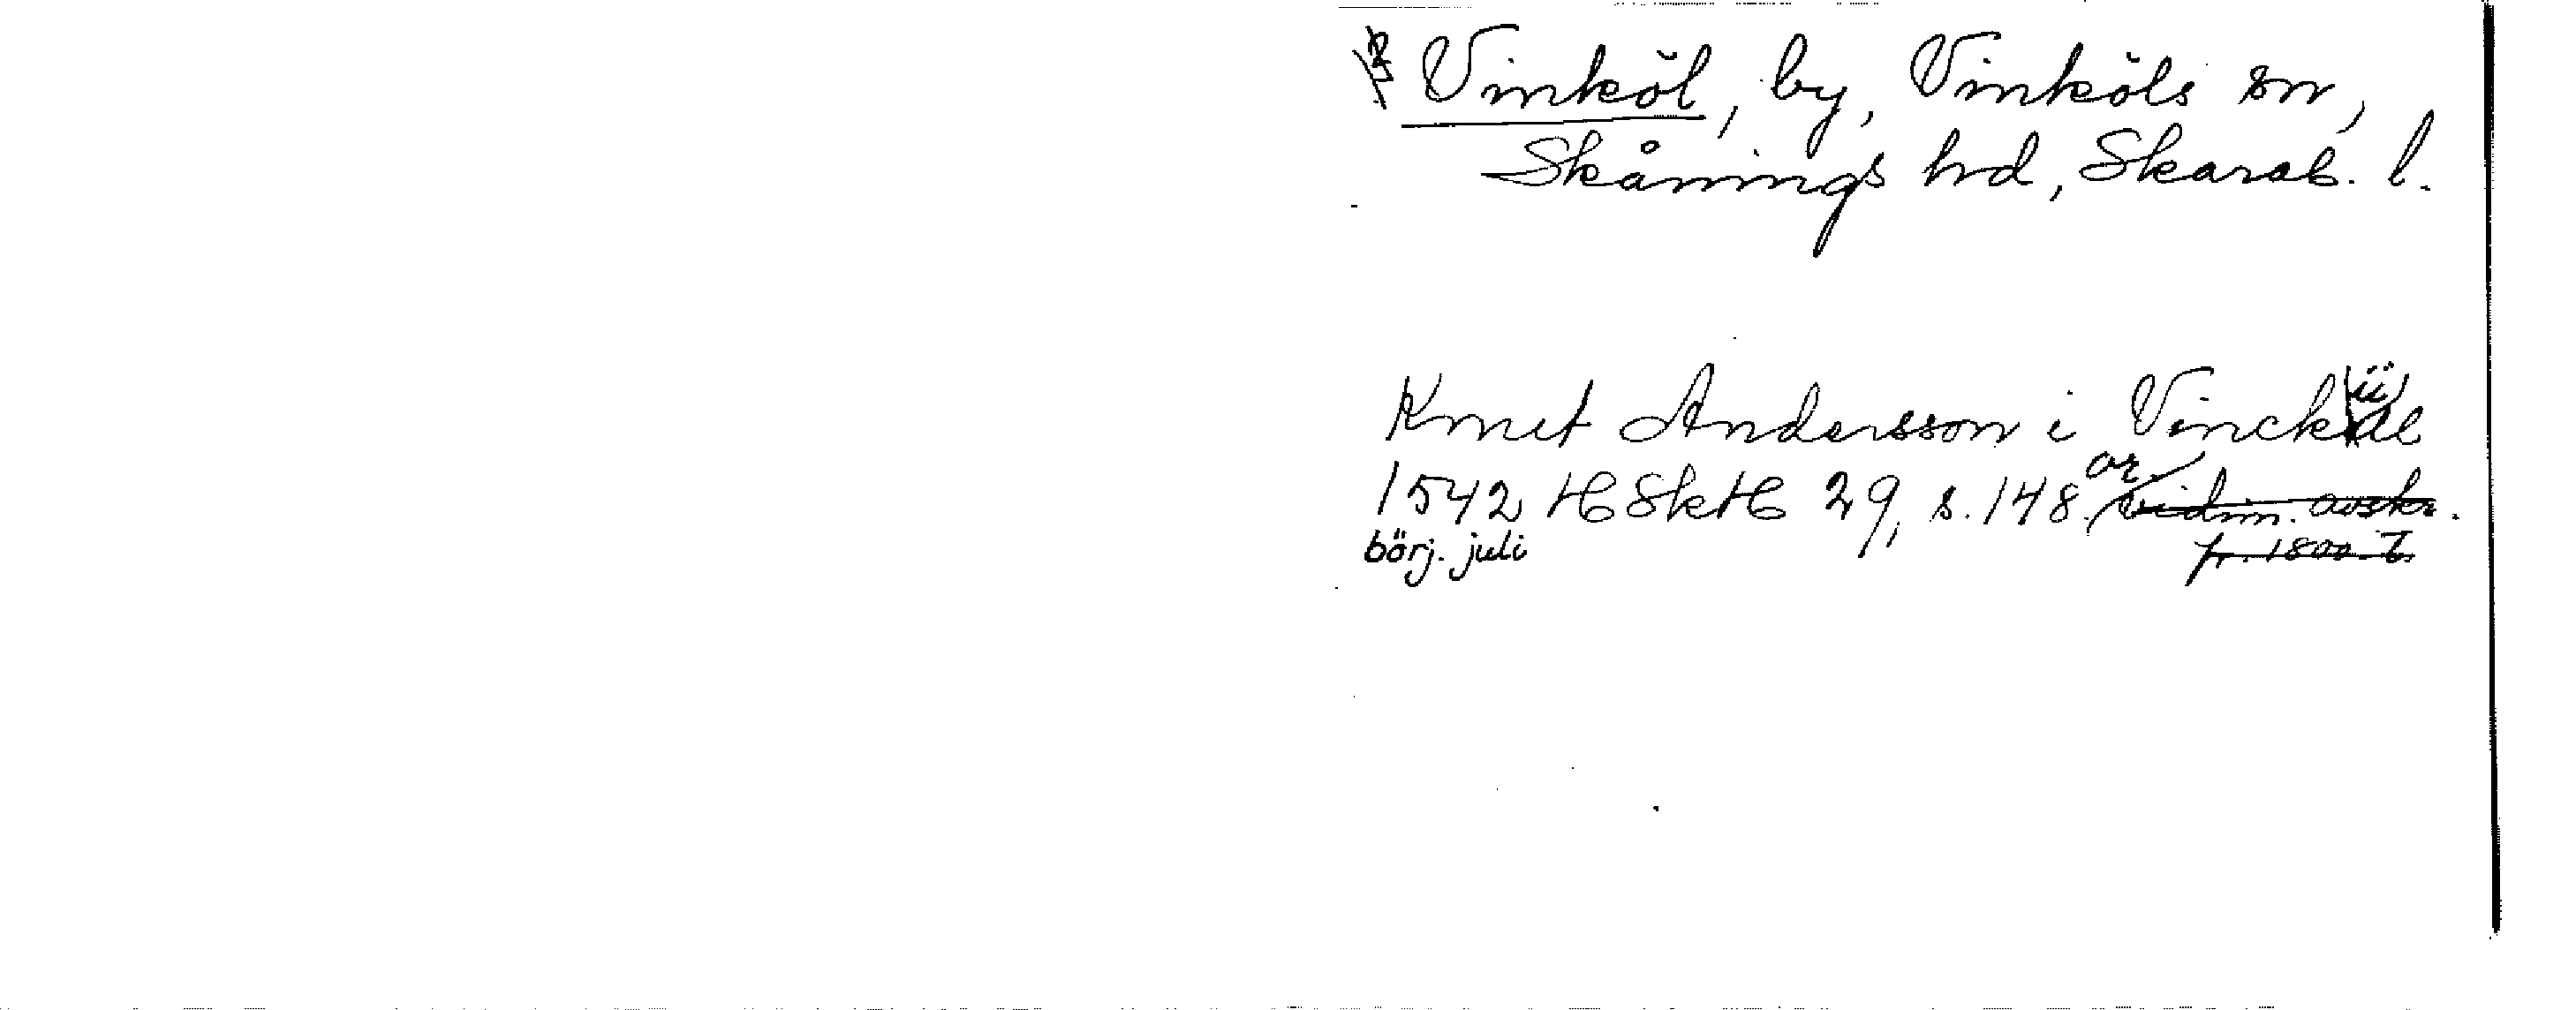 Vinköl, by, Vinköls sn,
Skånings hd, Skarab. l.
Knut Andersson i Vinckül
1542 HSkH 29, s. 148. or vidim. avskr.
börj. juli fr. 1800-t.